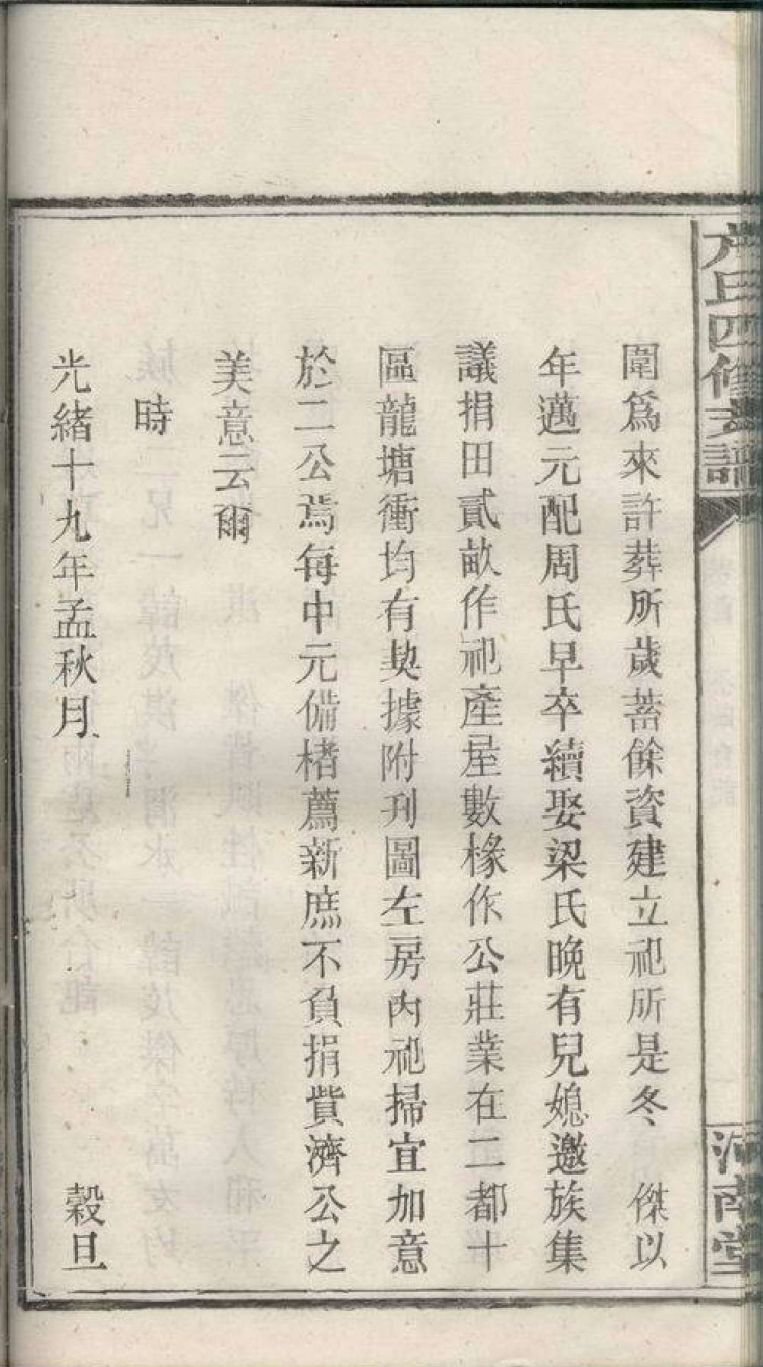 氏四修支譜
河南堂
圍爲來許葬所歲蓄餘資建立祀所是冬　傑以
年邁元配周氏早卒續娶梁氏晚有兒媳邀族集
議捐田貳畝作祀產屋數椽作公莊業在二都十
區龍塘衝均有契據附刊圖左房內祀掃宜加意
於二公焉每中元備楮薦新庶不負捐貲濟公之
美意云爾
時
光緒十九年孟秋月　穀旦